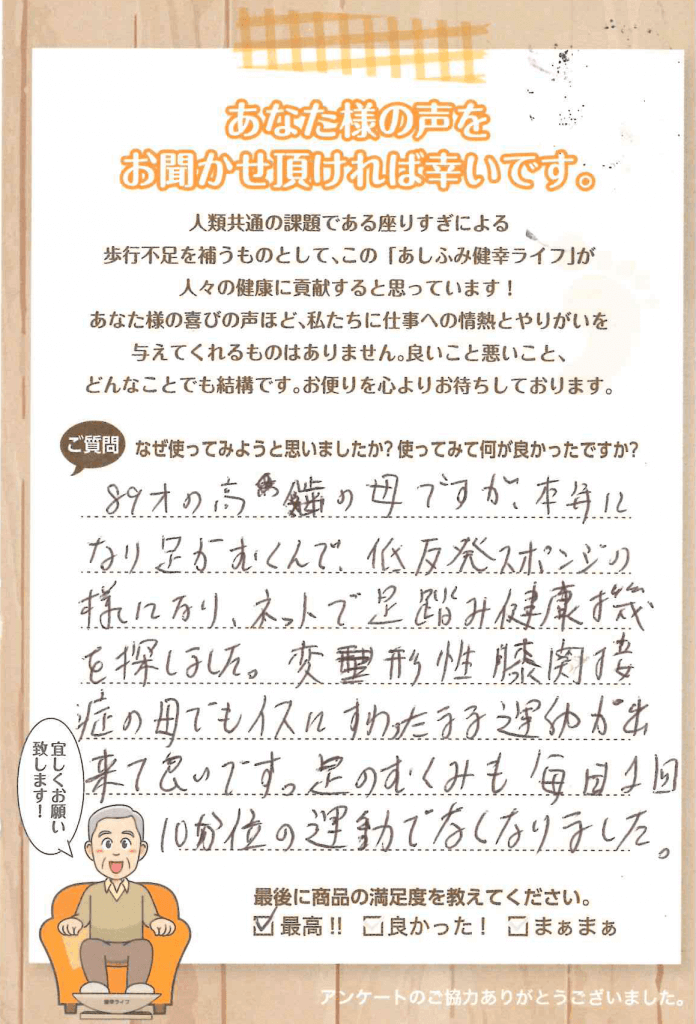 あなた様の声を
お聞かせ頂ければ幸いです。
人類共通の課題である座りすぎによる
歩行不足を補うものとして、この「あしふみ健幸ライフ」が
人々の健康に貢献すると思っています！
あなた様の喜びの声ほど、私たちに仕事への情熱とやりがいを
与えてくれるものはありません。良いこと悪いこと、
どんなことでも結構です。お便りを心よりお待ちしております。
ご質問 なぜ使ってみようと思いましたか？使ってみて何が良かったですか？
89才の高齢の母ですが、本年に
なり足がむくんで、低反発スポンジの
様になり、ネットで足踏み健康機
を探しました。変形性膝関接
症の母でもイスにすわったまま運動が出
来て良いです。足のむくみも毎日1回
10分位の運動でなくなりました。
宜しくお願い
致します！
最後に商品の満足度を教えてください。
☑最高!! □良かった！ □まぁまぁ
健幸ライフ
アンケートのご協力ありがとうございました。